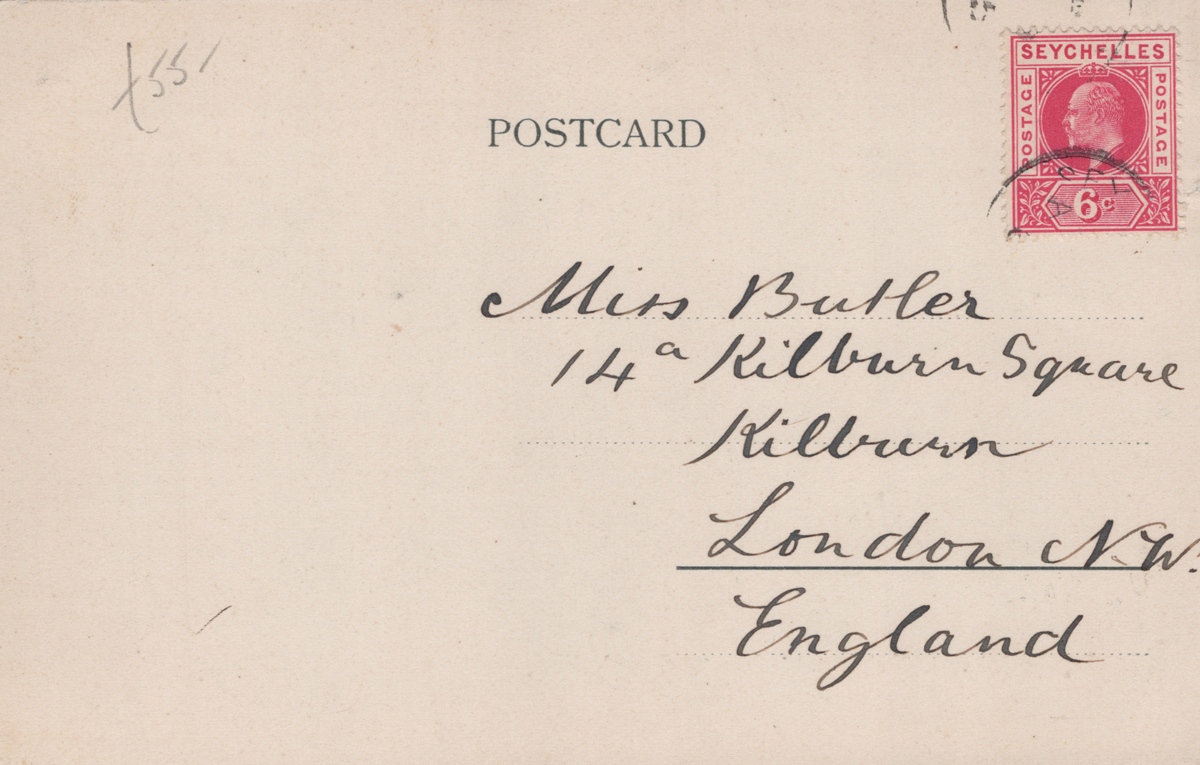 SEYCHELLES
POSTAGE
POSTAGE
6c
POSTCARD
Miss Butler
14a Kilburn Square
Kilburn
London N.W.
England